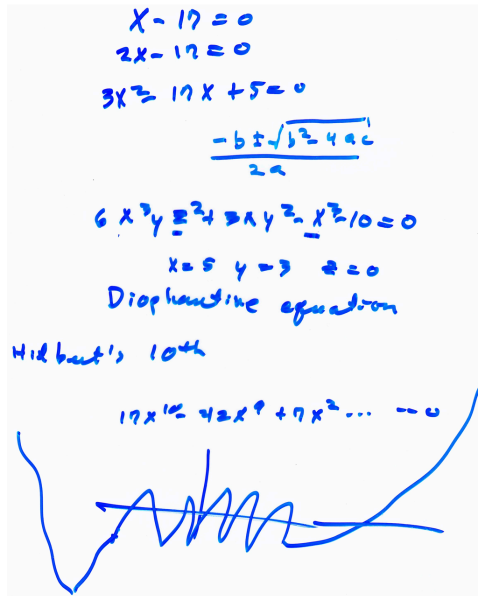 x - 17 = 0
2x - 17 = 0
3x² - 17x + 5 = 0
-b ± √b² - 4ac
2a
6x³yz² + 3xy² - x³ - 10 = 0
x = 5 y = 3 z = 0
Diophantine equation
Hilbert's 10th
17x¹⁰ - 42x⁹ + 7x² ... = 0